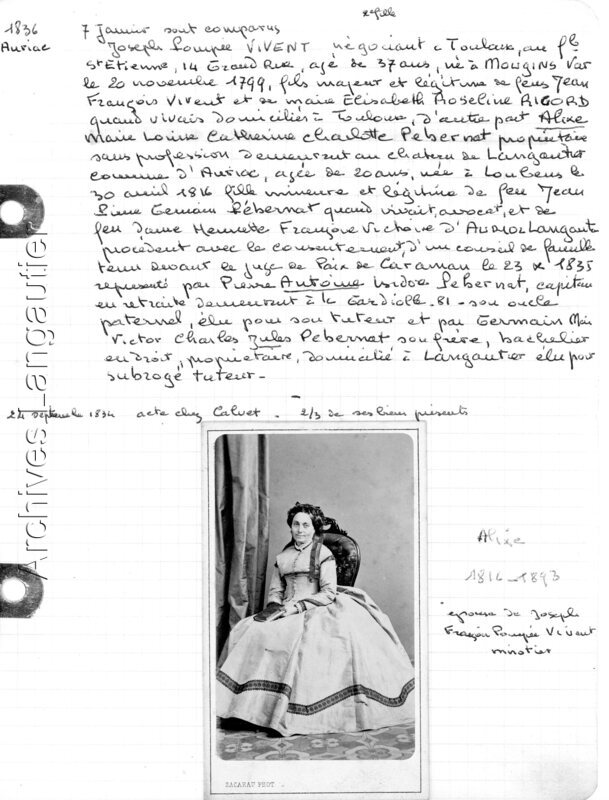 2e fille
1836
Auriac
7 Janvier sont comparus
Joseph Pompée VIVENT négociant à Toulouse, au fb
St Etienne, 14 Grand Rue, agé de 37 ans, né à MOUGINS Var
le 20 novembre 1799, fils majeur et légitime de feus Jean
François Vivent et de marie Elisabeth Roseline RIGORD
quand vivais domiciliés à Toulouse, d'autre part Alixe
Marie Louise Catherine Charlotte Pebernat propriétaire
sans profession demeurant au chateau de Langautier
commune d'Auriac, agée de 20 ans, née à Loubens le
30 avril 1816 fille mineure et légitime de feu Jean
Pierre Germain Pébernat quand vivait, avocat, et de
feu dame Henriette Françoise Victoire d'AURIOL Langautie
procédent avec le consentement d'un conseil de famille
tenu devant le juge de Paix de Caraman le 23 x 1835
représenté par Pierre Antoine Isidore Pebernat, capitain
en retraite demeurant à la Gardiolle-81 - son oncle
paternel, élu pour son tuteur et par Germain Marie
Victor Charles Jules Pebernat son frère, bachelier
en droit, propriétaire, domicilié à Langautier élu pour
subrogé tuteur -
24 septembre 1834 acte chez Calvet - 2/3 de ses biens présents
Archives Langautier
Alixe
1816-1893
épouse de Joseph
François Pompée Vivent
minotier
ZACARAT PHOT